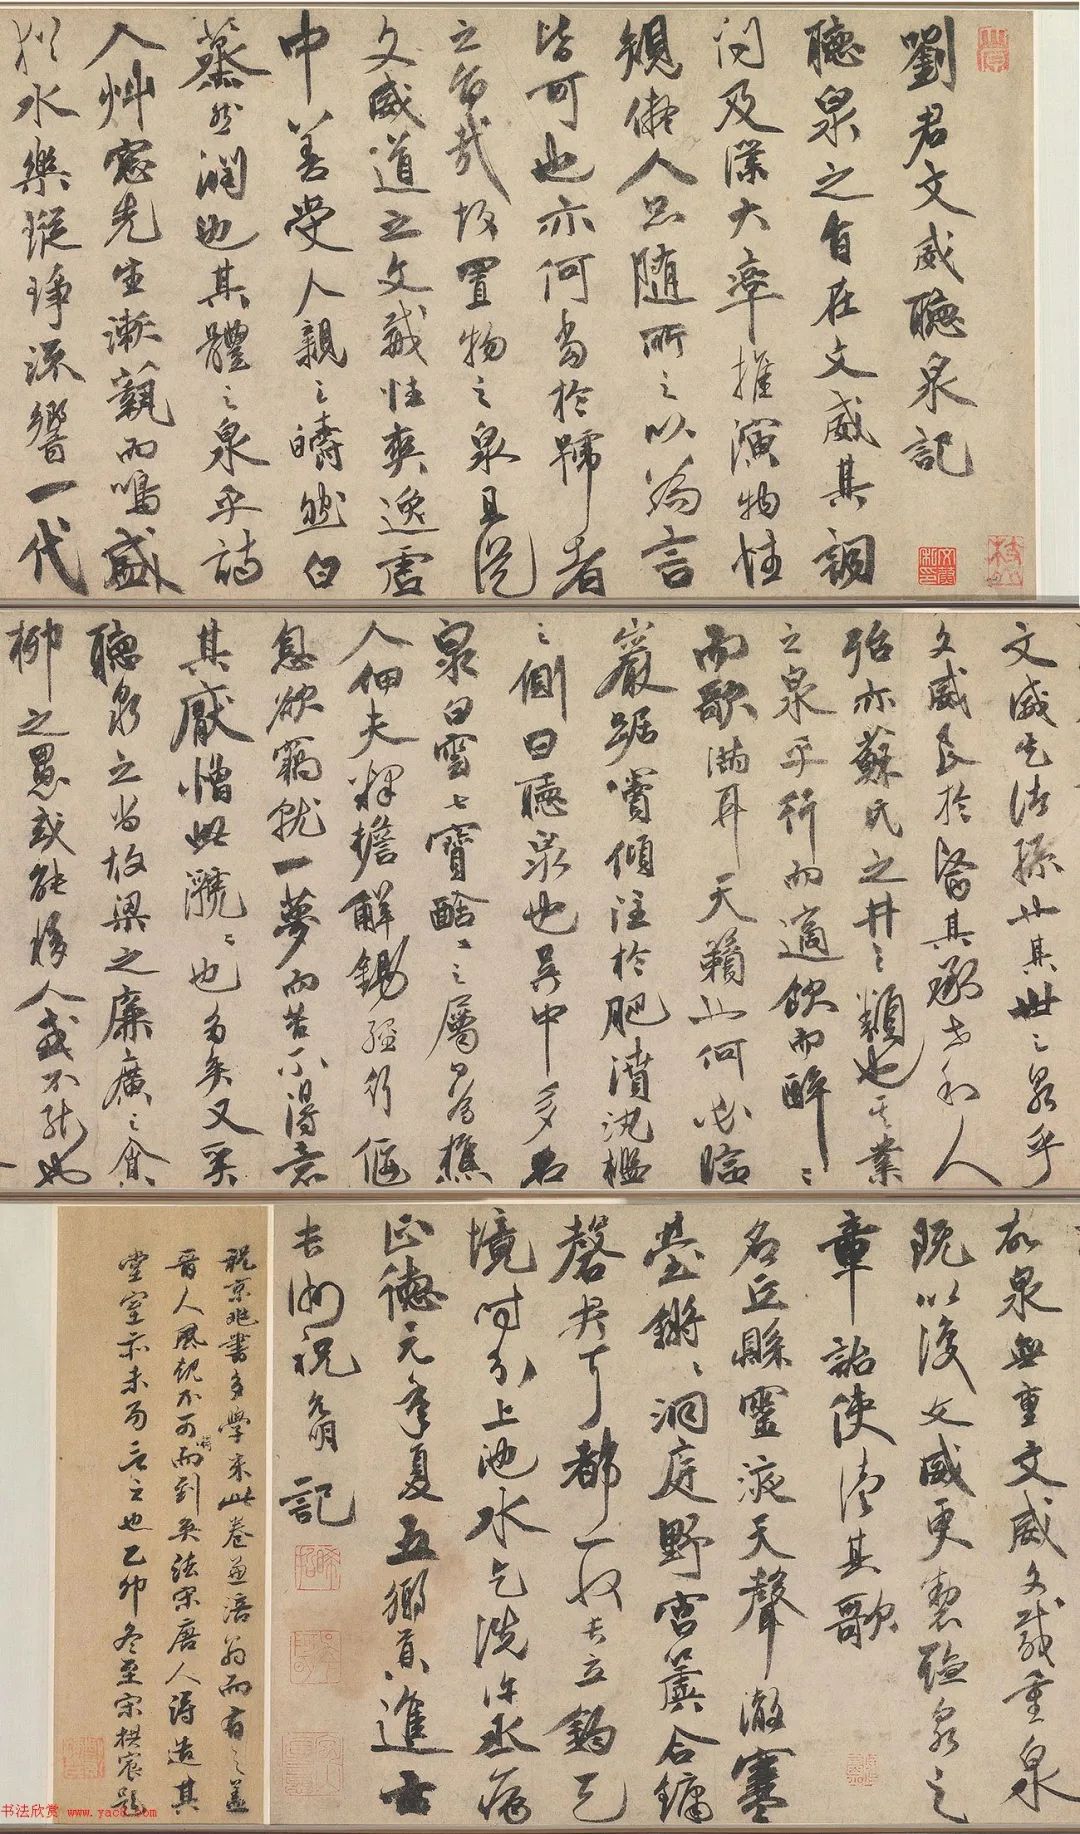 劉君文威聽泉記
聽泉之自在文威其詞
問及僕大率推演物性
規儗人品隨所之以為言
皆可也亦何當於號者
之旨哉故置物之泉且從
文威道之文威性爽逸虛
中善受人親之皭然白
藂然潤也其體之泉乎詩
人艸窓先生漸親而鳴盛
於水樂瑽琤深響一代
文威先德孫其世之泉乎
文威良於醫其承世利人
殆亦蘇氏之井之類也其業
之泉乎行而適飲而醉之
而歌滿耳天籟止何必臨
巖踞竇傾注於肥濆汍檻
之側曰聽泉也吳中多名
泉白雲七寶酷之屬以為樵
人佃夫釋擔解鋤經行偃
息欲竊就一夢而苦不得意
其厭憎此㶁㶁也多矣又奚
聽泉之當故梁之廉廣之貪
柳之愚或能移人或不能也
故泉無重文威文威重泉
既以復文威更製聽泉之
章詒使清其歌
名丘縣靈液天聲激寒
臺鏘鏘洞庭野宮羲合鏞
磬君耳都一收去立鈎己
境時分上池水乞洗許丞病
正德元年夏五鄉貢進士
長洲祝允明記
祝京兆書多學米此卷並涪翁而有之蓋
晉人風規不可得而到矣法宋唐人得造其
堂室亦未易言之也乙卯冬至宋拱宸題
书法欣赏 www.yac8.com